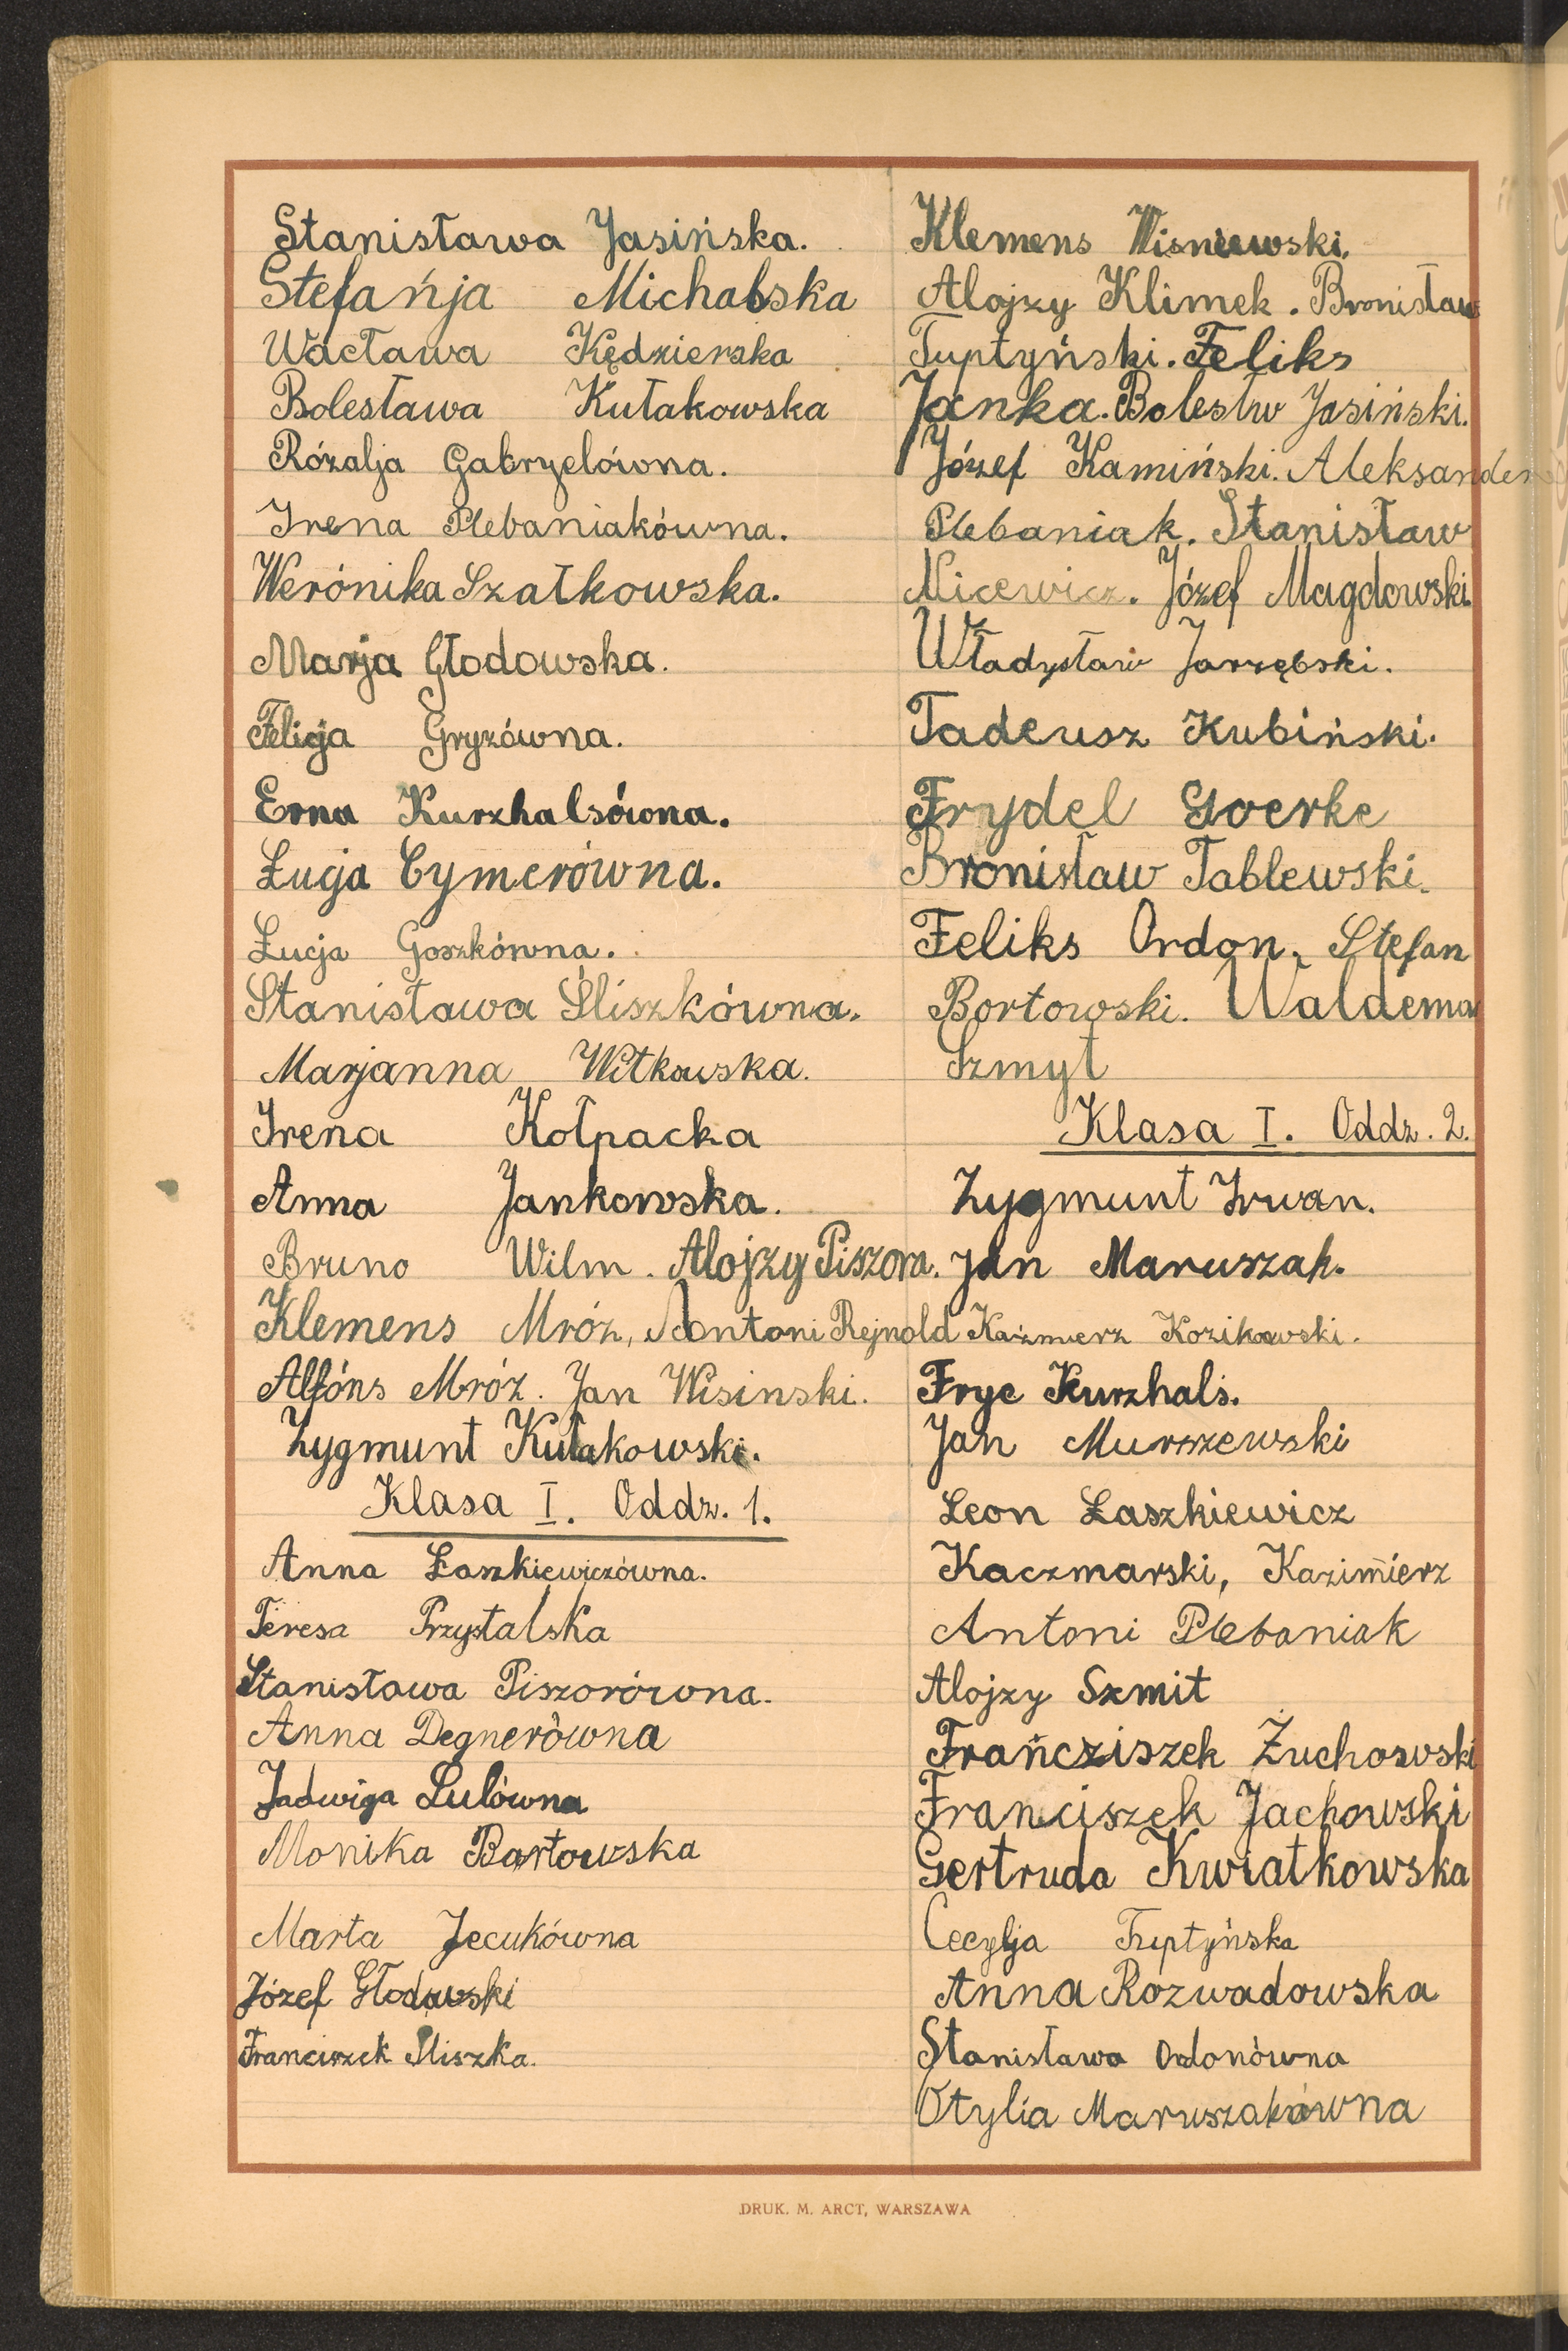 Stanisława Jasińska.
Stefańja Michalska
Wacława Kędzierska
Bolesława Kułakowska
Rózalja Gabryelówna.
Irena Plebaniakówna.
Werónika Szałkowska.
Marja Głodowska.
Felicja Gryzówna.
Erna Kurzhalsówna.
Łucja Cymerówna.
Łucja Goszkówna.
Stanisława Śliszkówna.
Marjanna Witkowska.
Irena Kołpacka
Anna Jankowska.
Bruno Wilm. Alojzy Piszora.
Klemens Mróz, Antoni Rejnold
Alfóns Mróz. Jan Wisinski.
Zygmunt Kułakowski.
Klasa I. Oddz. 1.
Anna Łaszkiewiczówna.
Teresa Przystalska
Stanisława Piszorówna.
Anna Degnerówna
Jadwiga Lulówna
Monika Bartowska
Marta Jecukówna
Józef Głodowski
Franciszek Śliszka.
Klemens Wisniewski.
Alojzy Klimek. Bronisław
Tuptyński. Feliks
Janka. Bolesłw Jasiński.
Józef Kamiński. Aleksander
Plebaniak. Stanisław
Nicewicz. Józef Magdowski
Władysław Jarzębski.
Tadeusz Kubiński.
Frydel Goerke
Bronisław Tablewski.
Feliks Ordon. Stefan
Bortowski. Waldemar
Szmyt
Klasa I. Oddz. 2.
Zygmunt Irwan.
Jan Maruszak.
Kazmierz Kozikowski.
Fryc Kurzhals.
Jan Murszewski
Leon Łaszkiewicz
Kaczmarski, Kazimierz
Antoni Plebaniak
Alojzy Szmit
Frańcziszek Żuchowski
Franciszek Jachowski
Gertruda Kwiatkowska
Cecylja Tuptyńska
Anna Rozwadowska
Stanisława Ordonówna
Otylia Maruszakówna
DRUK. M. ARCT, WARSZAWA